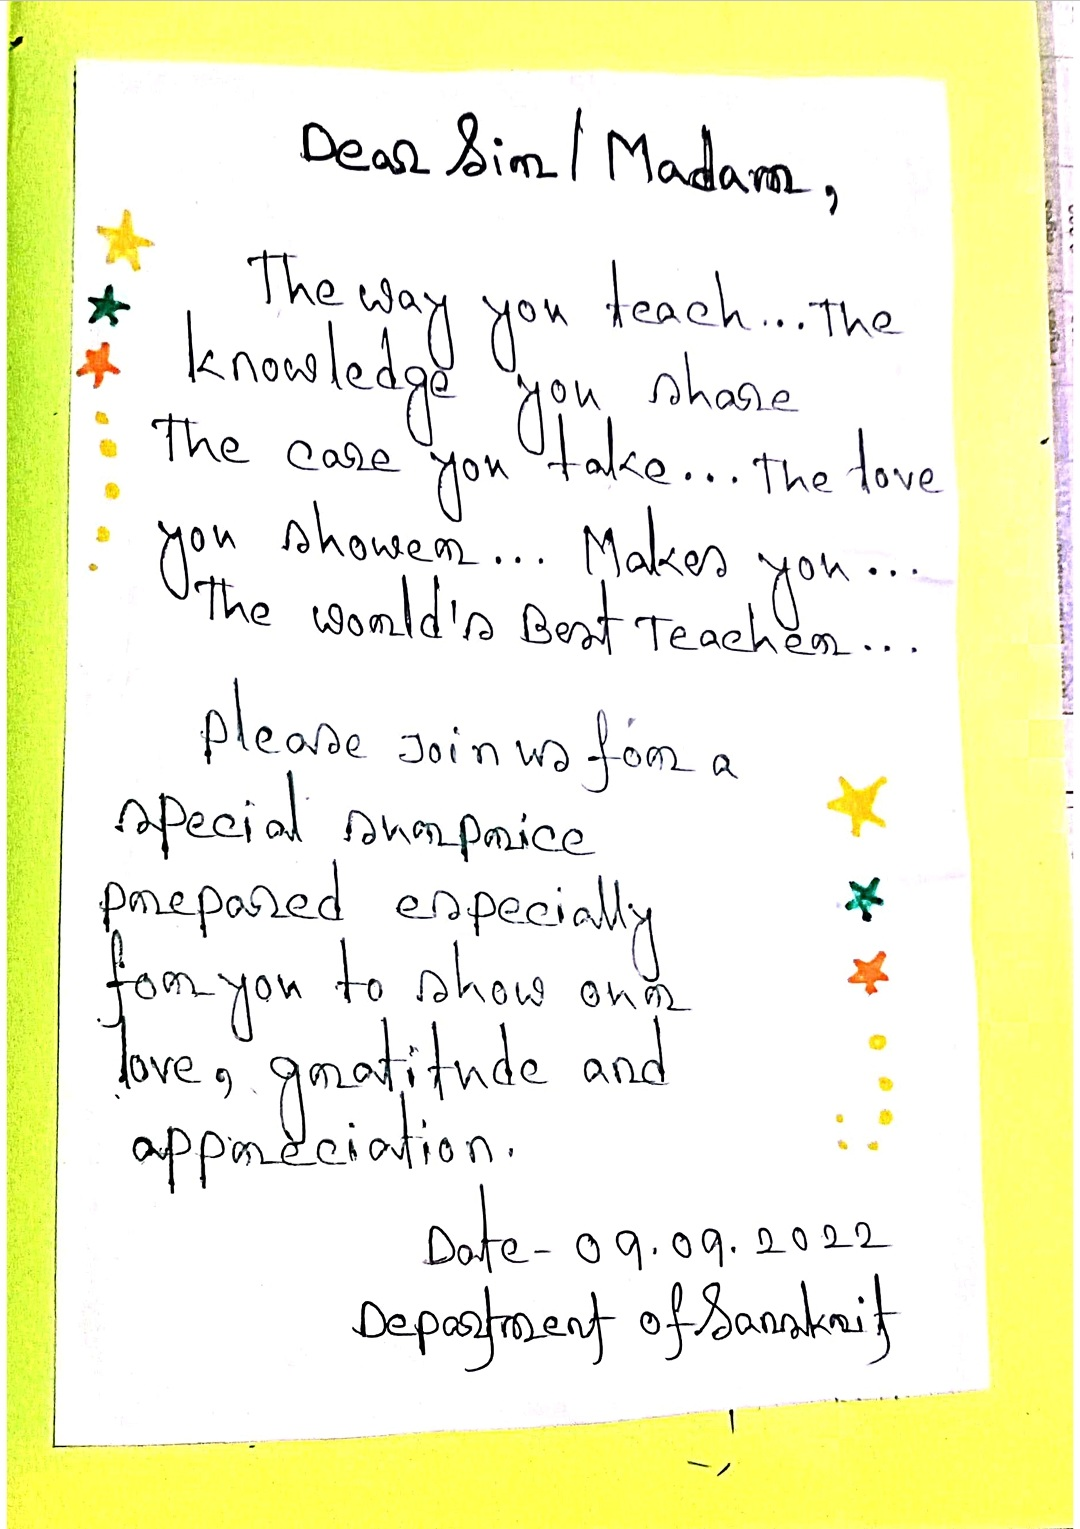 Dear Sir / Madam,
The way you teach... The
knowledge you share
The care you take... The love
you shower... Makes you...
The world's Best Teacher...
please Join us for a
special surprice
prepared especially
for you to show our
love, gratitude and
appreciation.
Date - 09.09.2022
Department of Sanskrit